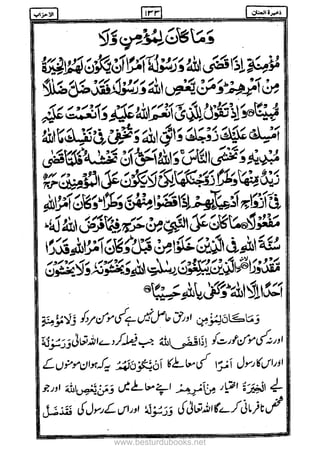 ذخيرة الجنان ۱۳۳ الاحزاب
وَمَا كَانَ لِمُؤْمِنٍ وَّلَا
مُؤْمِنَةٍ اِذَا قَضَى اللهُ وَرَسُوْلُهٗٓ اَمْرًا اَنْ يَّكُوْنَ لَهُمُ الْخِيَرَةُ
مِنْ اَمْرِهِمْ ؕ وَمَنْ يَّعْصِ اللهَ وَرَسُوْلَهٗ فَقَدْ ضَلَّ ضَلٰلًا
مُّبِيْنًا وَاِذْ تَقُوْلُ لِلَّذِيْٓ اَنْعَمَ اللهُ عَلَيْهِ وَاَنْعَمْتَ عَلَيْهِ
اَمْسِكْ عَلَيْكَ زَوْجَكَ وَاتَّقِ اللهَ وَتُخْفِيْ فِيْ نَفْسِكَ مَا اللهُ
مُبْدِيْهِ وَتَخْشَى النَّاسَ ۚ وَاللهُ اَحَقُّ اَنْ تَخْشٰىهُ ؕ فَلَمَّا قَضٰى
زَيْدٌ مِّنْهَا وَطَرًا زَوَّجْنٰكَهَا لِكَيْ لَا يَكُوْنَ عَلَى الْمُؤْمِنِيْنَ حَرَجٌ
فِيْٓ اَزْوَاجِ اَدْعِيَآئِهِمْ اِذَا قَضَوْا مِنْهُنَّ وَطَرًا ؕ وَكَانَ اَمْرُ اللهِ
مَفْعُوْلًا مَا كَانَ عَلَى النَّبِيِّ مِنْ حَرَجٍ فِيْمَا فَرَضَ اللهُ لَهٗ ؕ
سُنَّةَ اللهِ فِي الَّذِيْنَ خَلَوْا مِنْ قَبْلُ ؕ وَكَانَ اَمْرُ اللهِ قَدَرًا
مَّقْدُوْرًا الَّذِيْنَ يُبَلِّغُوْنَ رِسٰلٰتِ اللهِ وَيَخْشَوْنَهٗ وَلَا يَخْشَوْنَ
اَحَدًا اِلَّا اللهَ ؕ وَكَفٰى بِاللهِ حَسِيْبًا
وَمَا كَانَ لِمُؤْمِنٍ اور حق حاصل نہیں کسی مومن مرد کو وَّلَا مُؤْمِنَةٍ
اور نہ کسی مومن عورت کو اِذَا قَضَى اللهُ جب فیصلہ کر دے اللہ تعالیٰ وَرَسُوْلُهٗٓ
اور اس کا رسول اَمْرًا کسی معاملے کا اَنْ يَّكُوْنَ لَهُمُ یہ کہ ہو ان مومنوں کے
لیے الْخِيَرَةُ اختیار مِنْ اَمْرِهِمْ اپنے معاملے میں وَمَنْ يَّعْصِ اللهَ اور جو
شخص نافرمانی کرے گا اللہ تعالیٰ کی وَرَسُوْلَهٗ اور اس کے رسول کی فَقَدْ ضَلَّ
www.besturdubooks.net